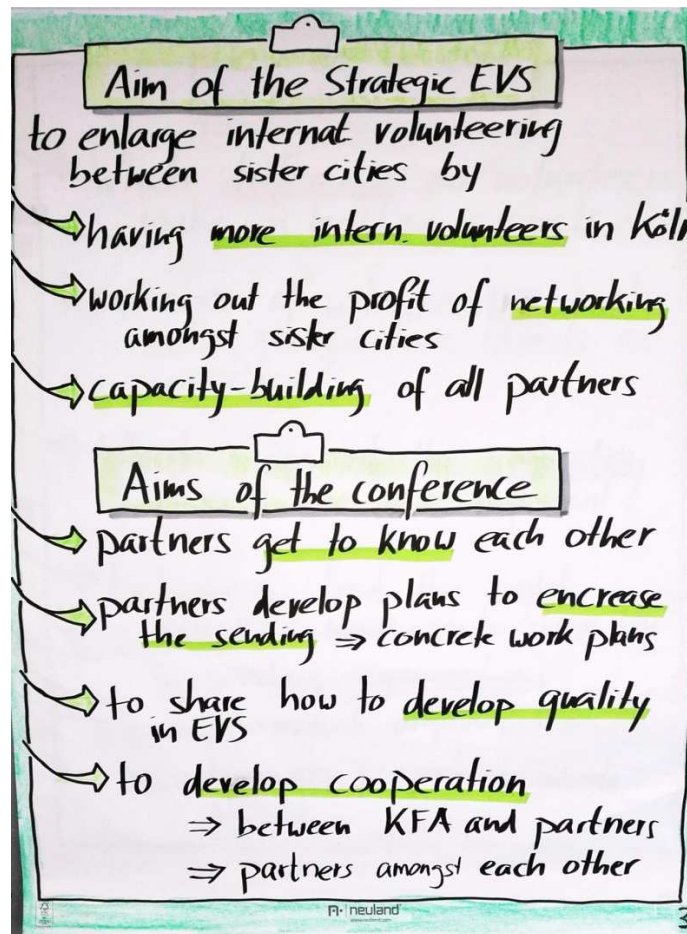 Aim of the Strategic EVS
to enlarge internat. volunteering
between sister cities by
having more intern. volunteers in Köln
working out the profit of networking
amongst sister cities
capacity-building of all partners
Aims of the conference
partners get to know each other
partners develop plans to encrease
the sending ⇒ concrete work plans
to share how to develop quality
in EVS
to develop cooperation
⇒ between KFA and partners
⇒ partners amongst each other
neuland